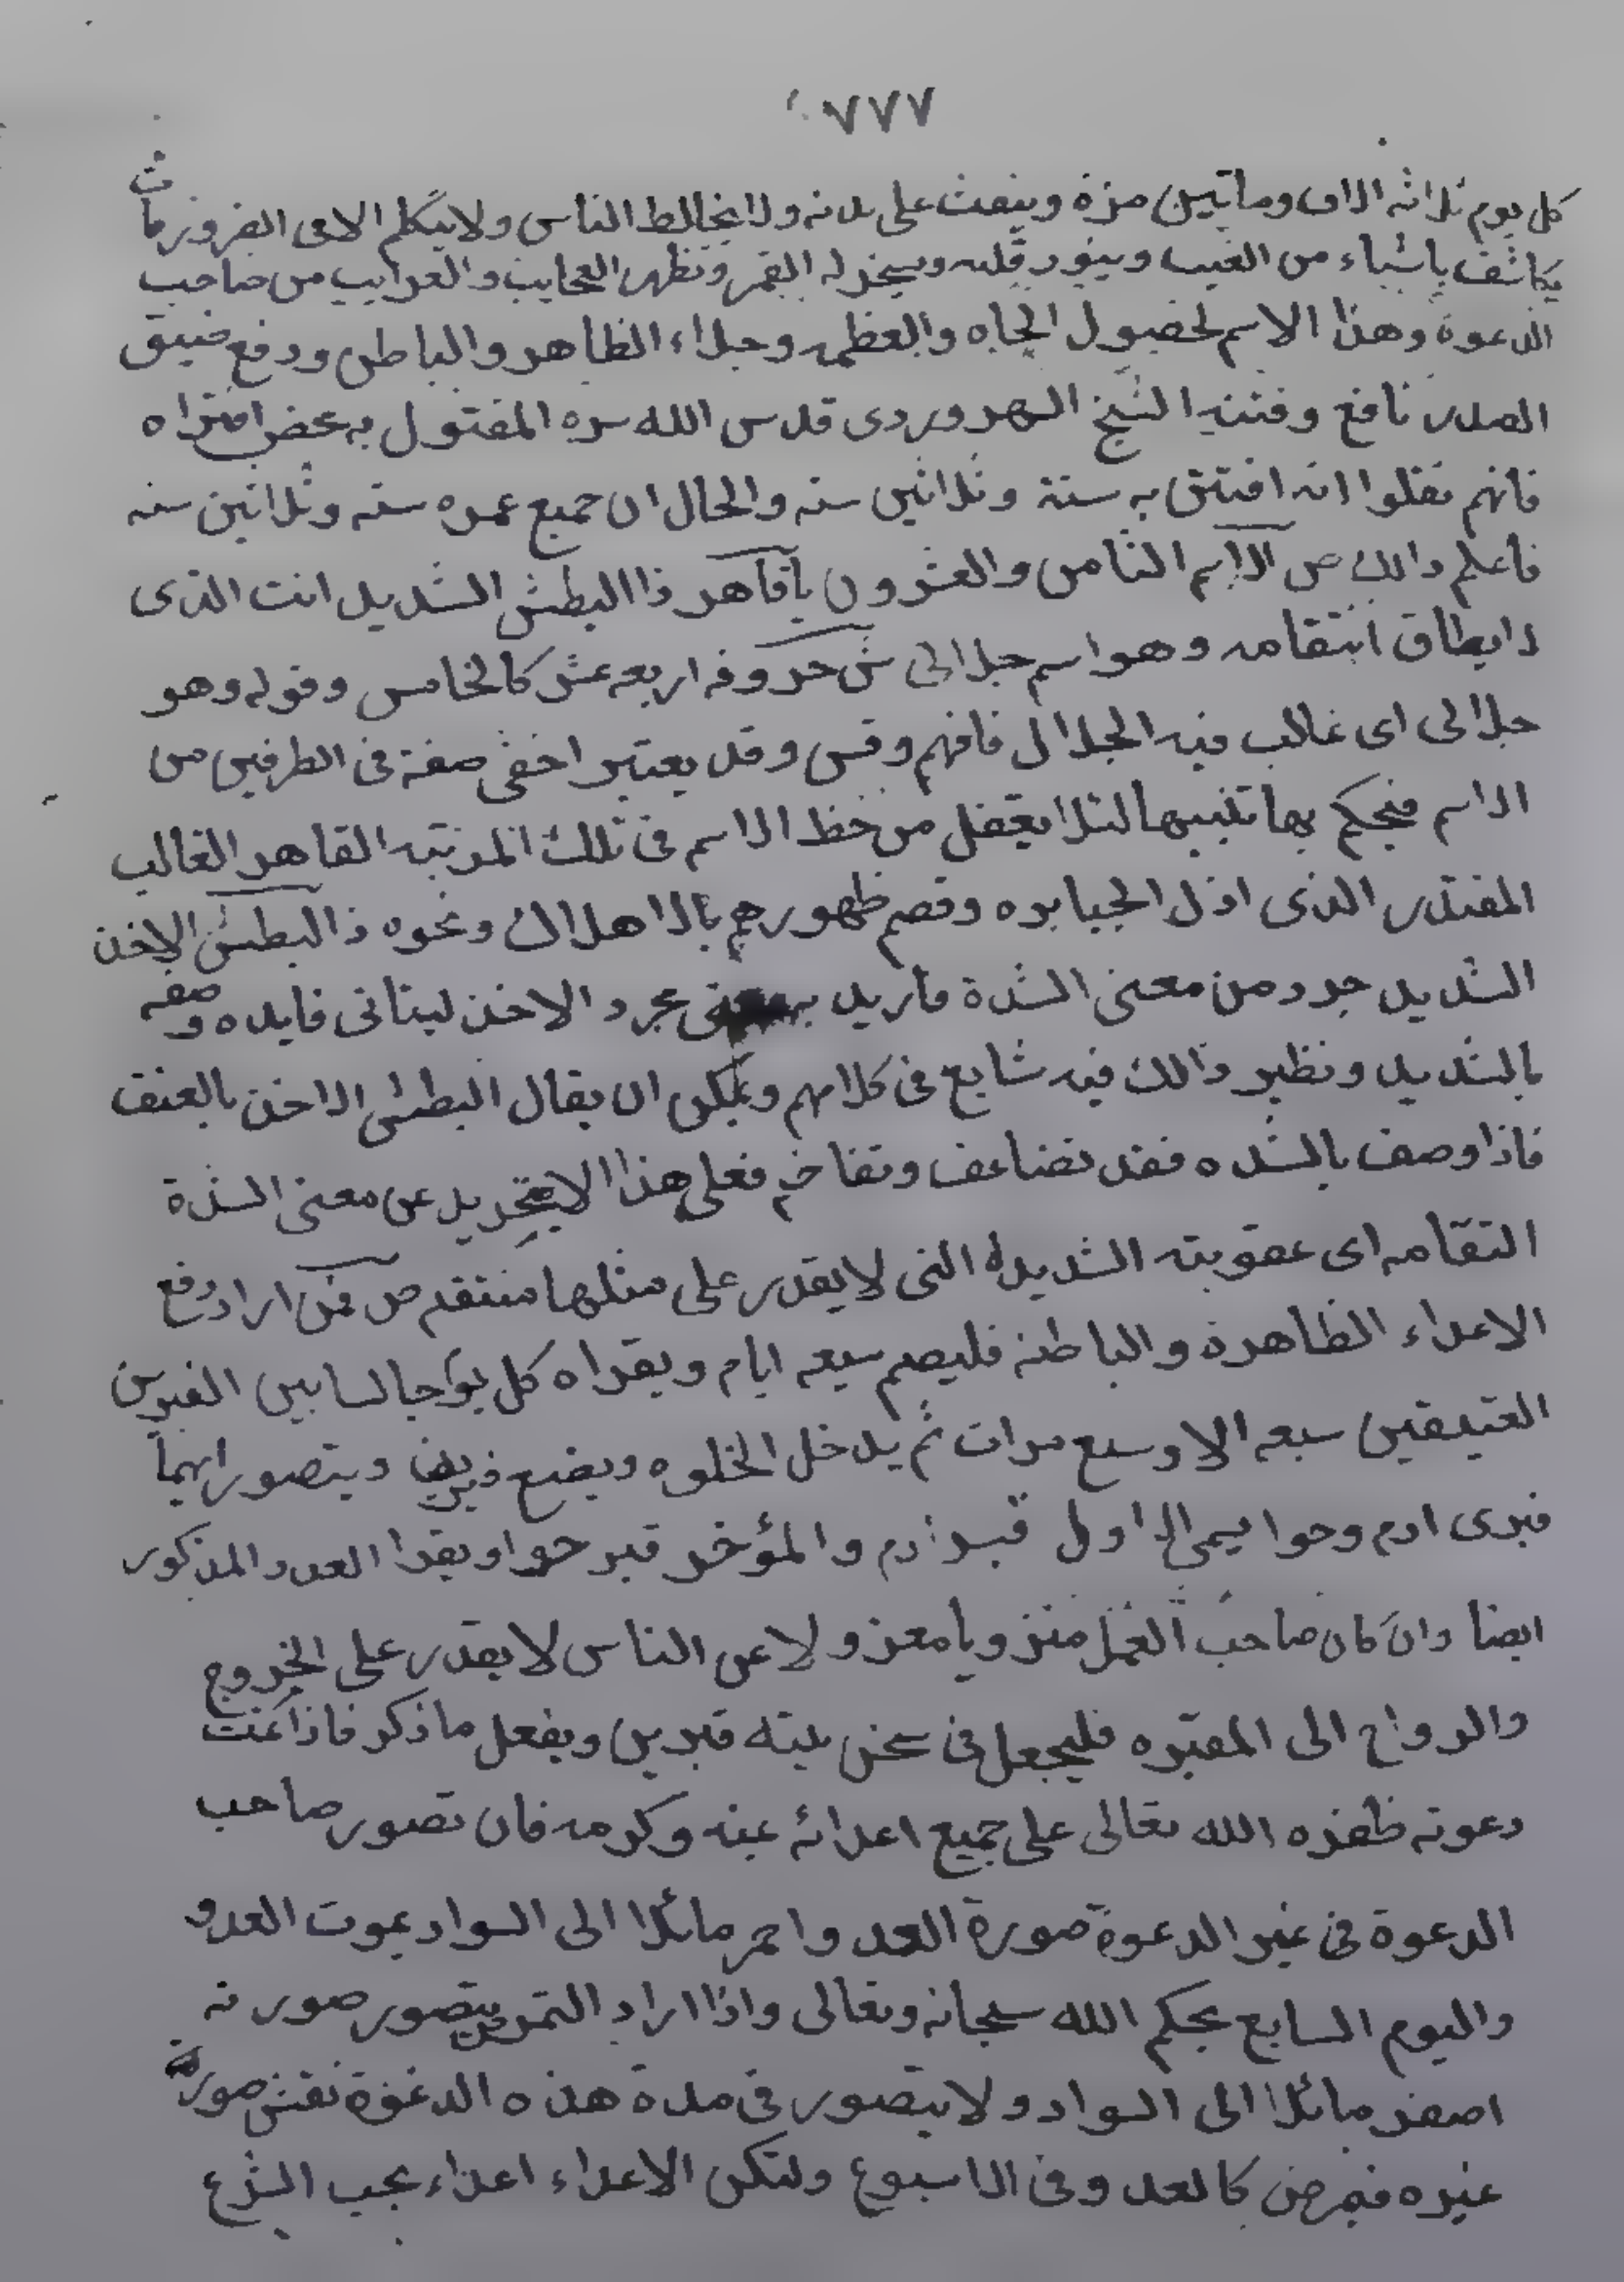 ٧٧٧
كل يوم ثلاثه الاف وماتين مرة وينفث على بدنه ولا يخالط الناس ولا يتكلم الا فى الضرورات
يكاشف باشياء من الغيب وينور قلبه ويسخر له القمر وتظهر العجايب والغرايب من صاحب
الدعوة وهذا الاسم لحصول الجاه والعظمه وجلاء الظاهر والباطن ودفع ضيق
الصدر نافع وفتنه الشيخ السهروردى قدس الله سره المقتول به محض افتراه
فانهم نقلوا انه افتتن به ستة وثلاثين سنه والحال ان جميع عمره سته وثلاثين سنه
فاعلم ذالك ص الاسم الثامن والعشرون ياقاهر ذا البطش الشديد انت الذى
لا يطاق انتقامه وهو اسم جلالى ش حروفه اربعه عشر كالخامس وقوله وهو
جلالى اى غالب فيه الجلال فافهم وقس وقد يعتبر اخفى صفة فى الطرفين من
الاسم فيحكم بها تنبيها لئلا يغفل من حظ الاسم فى تلك المرتبه القاهر الغالب
المقتدر الذى اذل الجبابره وقصم ظهورهم بالاهلاك ونحوه ذا البطش الاخذ
الشديد جرد من معنى الشدة فاريد به معنى مجرد الاخذ ليتاتى فايده وصفه
بالشديد ونظير ذالك فيه شايع فى كلامهم ويمكن ان يقال البطش الاخذ بالعنف
فاذا وصف بالشده فقد تضاعف وتفاخم فعلى هذا لا يتجريد عن معنى الشدة
انتقامه اى عقوبته الشديدة التى لا يقدر على مثلها منتقم ص فمن اراد دفع
الاعداء الظاهرة والباطنه فليصم سبعه ايام ويقراه كل يوم جالسا بين القبرين
العتيقين سبعه الاف وسبع مرات ثم يدخل الخلوه ويضع قبرين ويتصور انهما
قبرى ادم وحوا يسمى الاول قبر ادم والمؤخر قبر حوا ويقرا العدد المذكور
ايضا وان كان صاحب العمل والناس لا يقدر على الخروج
والرواح الى المقبره فليجعل فى صحن بيته قبرين ويفعل ما ذكر فاذا تمت
دعوته ظفره الله تعالى على جميع اعدائه بمنه وكرمه فان تصور صاحب
الدعوة فى غير الدعوة صورة العدو احمر مائلا الى السواد يموت العدو
واليوم السابع بحكم الله سبحانه وتعالى واذا اراد التمريض يتصور صورته
اصفر مائلا الى السواد ولا يتصور فى مدة هذه الدعوة نقش صورة
غيره فيمرض كالعدو فى الاسبوع ولتكن الاعداء اعداء بحسب الشرع